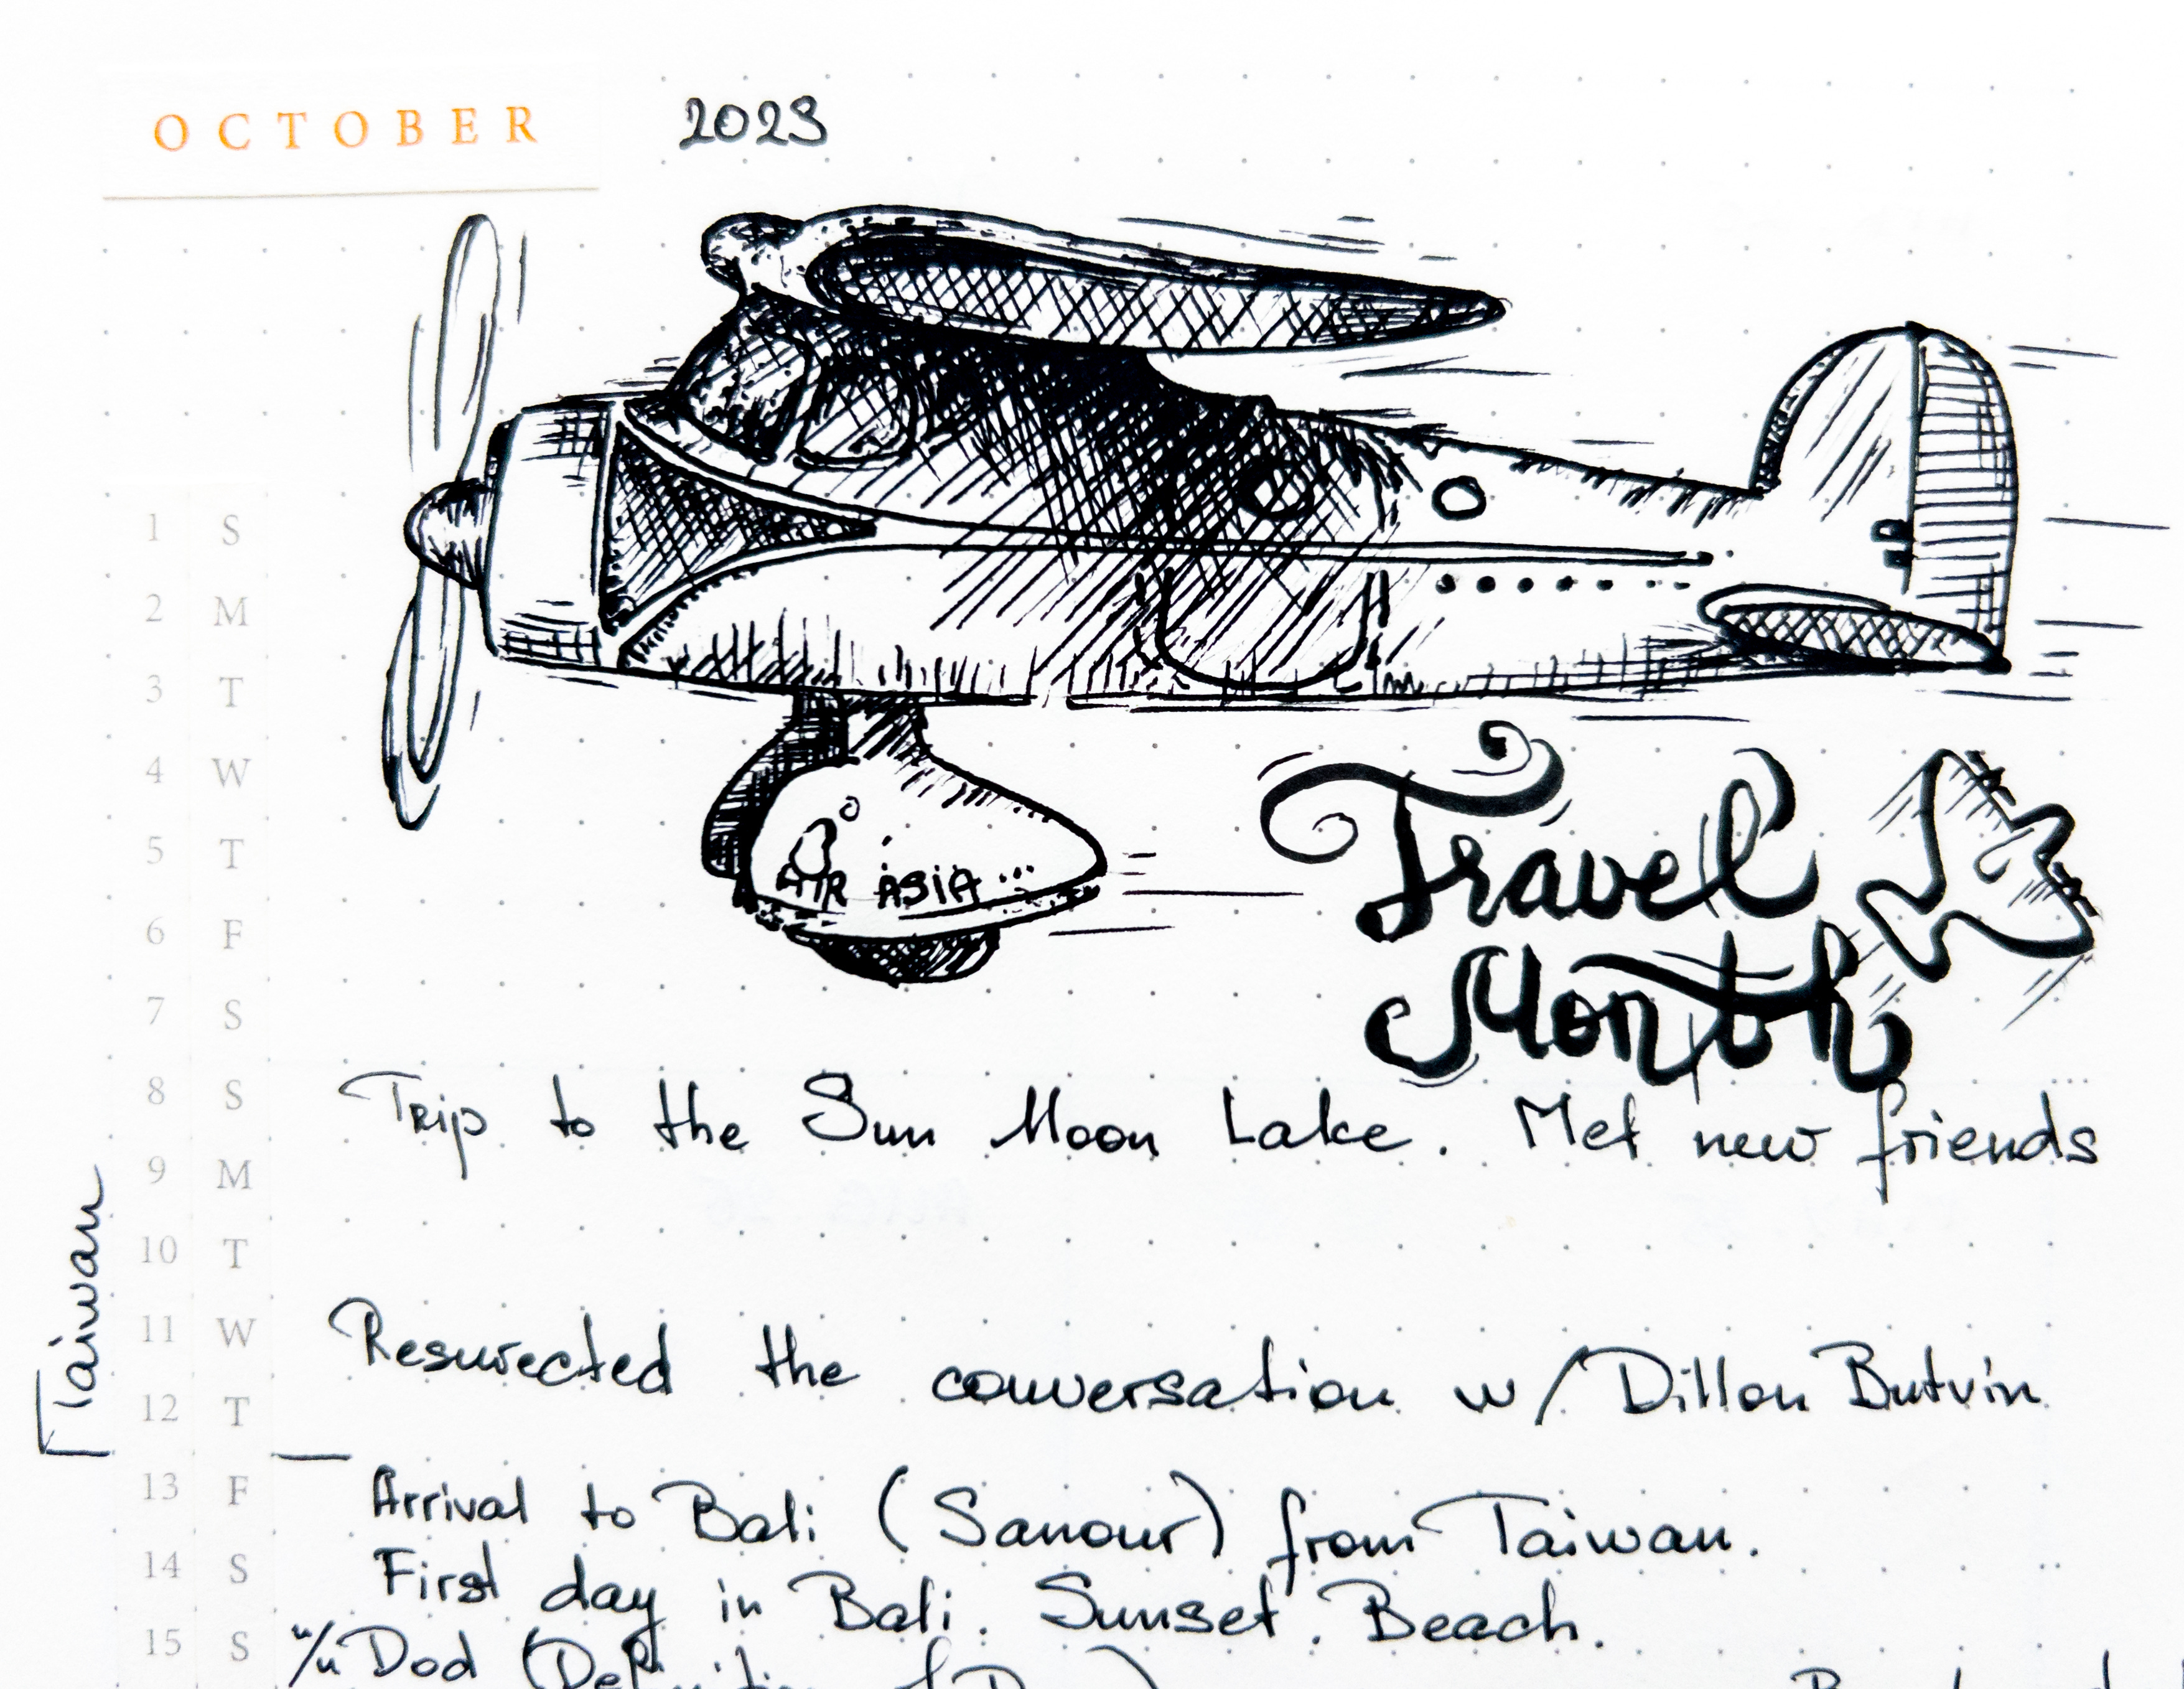 OCTOBER 2023
AIR ASIA...
Travel
Month
1 S
2 M
3 T
4 W
5 T
6 F
7 S
8 S Trip to the Sun Moon Lake. Met new friends
9 M
10 T
Taiwan
11 W Resurected the conversation w/ Dillon Butvin
12 T
13 F Arrival to Bali (Sanour) from Taiwan.
14 S First day in Bali. Sunset. Beach.
15 S Dod